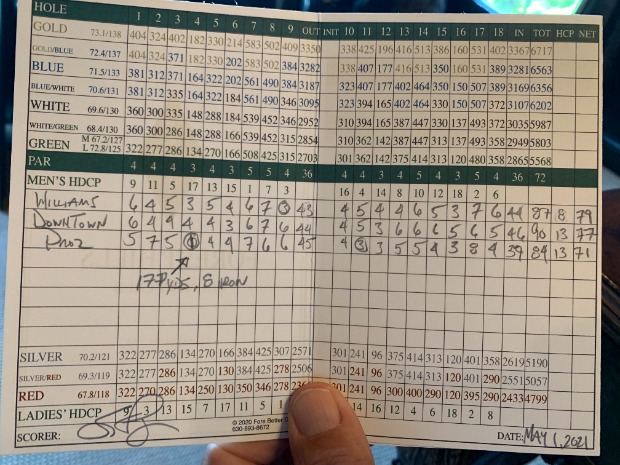 HOLE 1 2 3 4 5 6 7 8 9 OUT INIT 10 11 12 13 14 15 16 17 18 IN TOT HCP NET
GOLD 73.1/138 404 324 402 182 330 214 583 502 409 3350 338 425 196 416 513 386 160 531 402 3367 6717
GOLD/BLUE 72.4/137 404 324 371 182 330 202 583 502 384 3282 338 407 177 416 513 350 160 531 389 3281 6563
BLUE 71.5/133 381 312 371 164 322 202 561 490 384 3187 323 407 177 402 464 350 150 507 389 3169 6356
BLUE/WHITE 70.6/131 381 312 335 164 322 184 561 490 346 3095 323 394 165 402 464 330 150 507 372 3107 6202
WHITE 69.6/130 360 300 335 148 288 184 539 452 346 2952 310 394 165 387 447 330 137 493 372 3035 5987
WHITE/GREEN 68.4/130 360 300 286 148 288 166 539 452 315 2854 310 362 142 387 447 313 137 493 358 2949 5803
GREEN M 67.2/127 L 72.8/125 322 277 286 134 270 166 508 425 315 2703 301 362 142 375 414 313 120 480 358 2865 5568
PAR 4 4 4 3 4 3 5 5 4 36 4 4 3 4 5 4 3 5 4 36 72
MEN'S HDCP 9 11 5 17 13 15 1 7 3 16 4 14 8 10 12 18 2 6
WILLIAMS 6 4 5 3 5 4 6 7 3 43 4 5 4 4 6 5 3 7 6 44 87 8 79
DOWNTOWN 6 4 9 4 4 3 6 7 6 44 4 5 3 6 6 6 5 6 5 46 90 13 77
PROZ 5 7 5 1 4 4 7 6 6 45 4 3 3 5 5 4 3 8 4 39 84 13 71
177 YDS, 8 IRON
SILVER 70.2/121 322 277 286 134 270 166 384 425 307 2571 301 241 96 375 414 313 120 401 358 2619 5190
SILVER/RED 69.3/119 322 277 286 134 270 130 384 425 278 2506 301 241 96 375 414 313 120 401 290 2551 5057
RED 67.8/118 322 270 286 134 250 130 350 346 278 301 241 96 300 400 290 120 395 290 2433 4799
LADIES' HDCP 9 3 13 15 7 17 11 5 14 16 12 4 6 18 2 8
© 2020 Fore Better
630-893-8672
SCORER: DATE: MAY 1, 2021